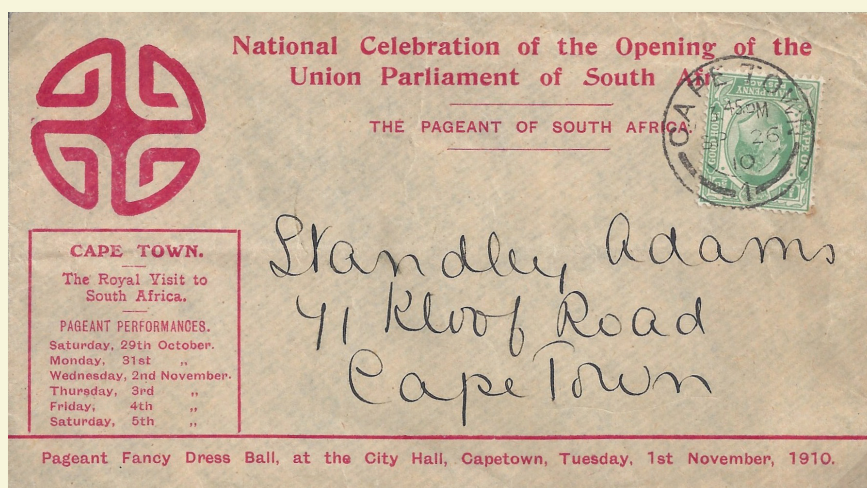 National Celebration of the Opening of the
Union Parliament of South
THE PAGEANT OF SOUTH AFRICA
CAPE TOWN
45 PM
26
10
1
CAPE TOWN.
The Royal Visit to
South Africa.
PAGEANT PERFORMANCES.
Saturday, 29th October.
Monday, 31st „
Wednesday, 2nd November.
Thursday, 3rd „
Friday, 4th „
Saturday, 5th „
Standley Adams
41 Kloof Road
Cape Town
Pageant Fancy Dress Ball, at the City Hall, Capetown, Tuesday, 1st November, 1910.